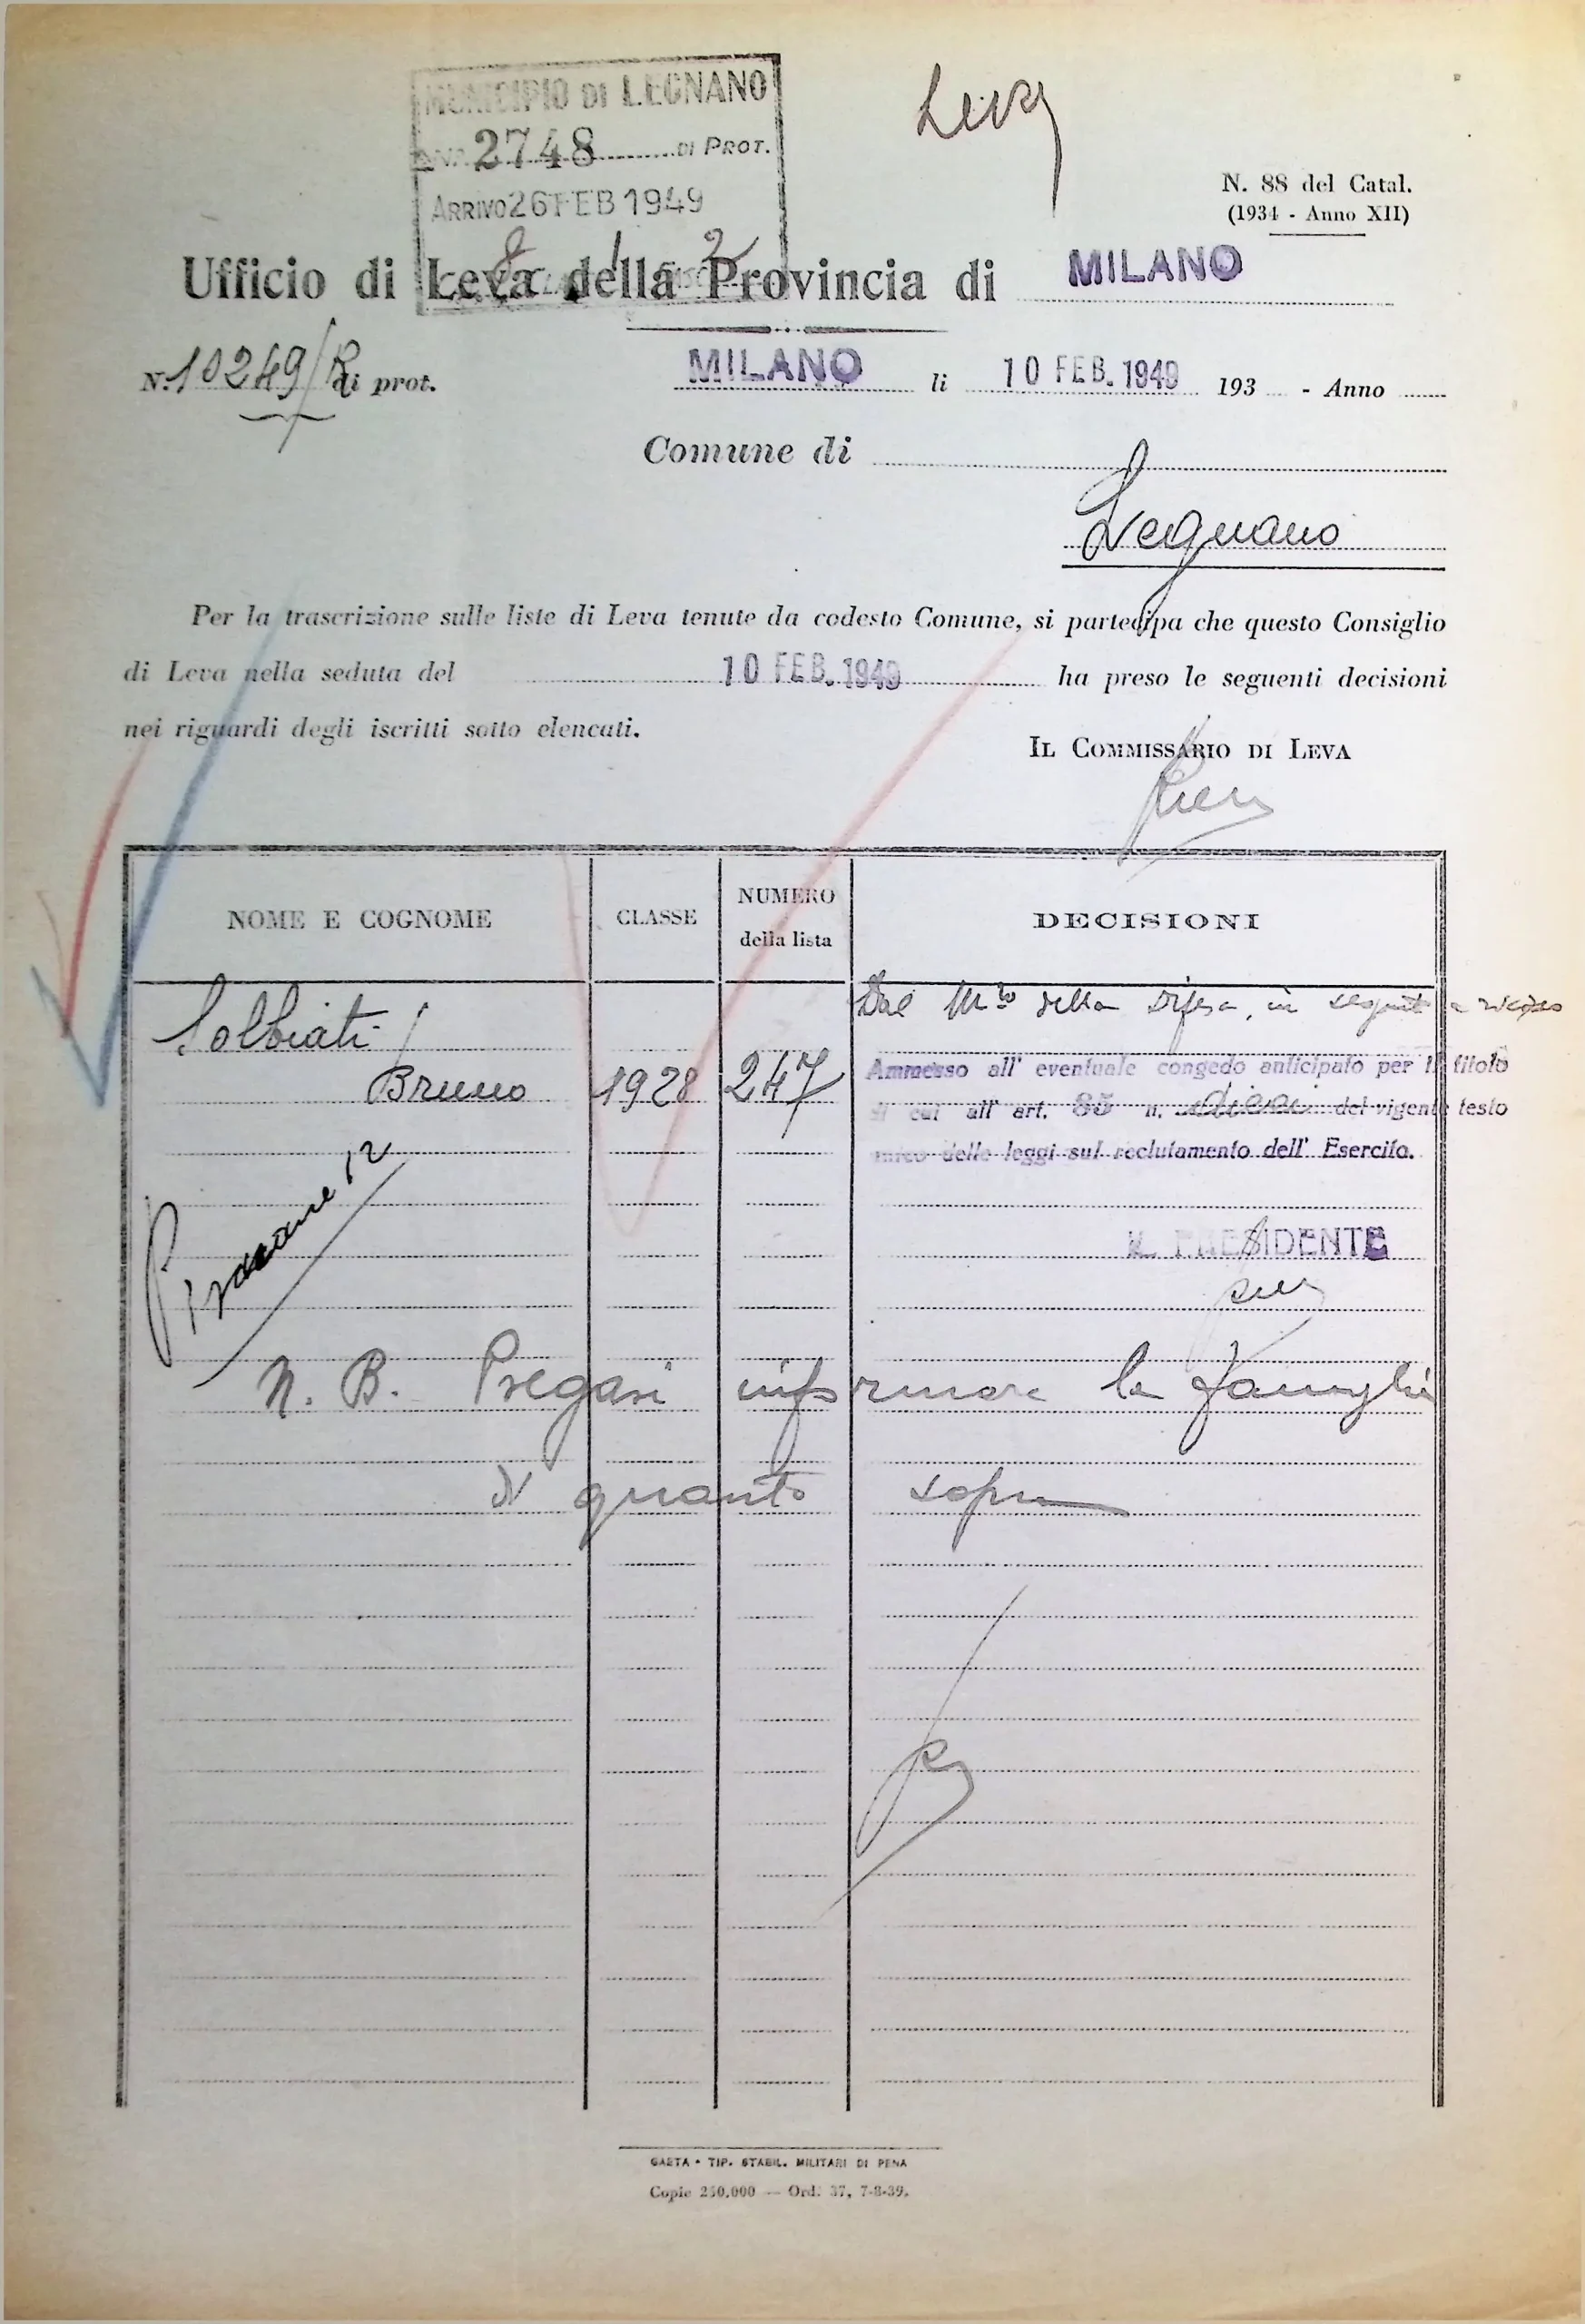 MUNICIPIO DI LEGNANO
2748 DI PROT.
ARRIVO 26 FEB 1949
8 1 2
Leva
N. 88 del Catal.
(1934 - Anno XII)
Ufficio di Leva della Provincia di MILANO
N. 10249/R di prot.
MILANO li 10 FEB. 1949 193 - Anno
Comune di
Legnano
Per la trascrizione sulle liste di Leva tenute da codesto Comune, si partecipa che questo Consiglio
di Leva nella seduta del 10 FEB. 1949 ha preso le seguenti decisioni
nei riguardi degli iscritti sotto elencati.
IL COMMISSARIO DI LEVA
NOME E COGNOME CLASSE NUMERO della lista DECISIONI
Dal M.ro della Difesa, in seguito a ricorso
Solbiati
Bruno 1928 247
Ammesso all' eventuale congedo anticipato per il titolo
di cui all' art. 85 n. dieci del vigente testo
unico delle leggi sul reclutamento dell' Esercito.
12
IL PRESIDENTE
N. B. Pregasi informare la famiglia
di quanto sopra
GAETA - TIP. STABIL. MILITARI DI PENA
Copie 250.000 — Ord. 37, 7-8-39.